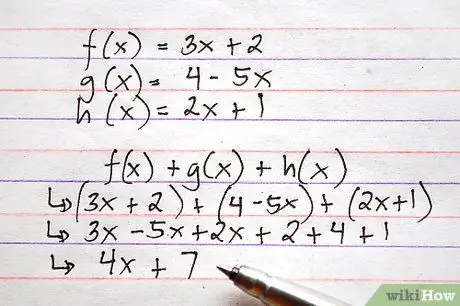 f(x) = 3x + 2
g(x) = 4 - 5x
h(x) = 2x + 1
f(x) + g(x) + h(x)
↳ (3x + 2) + (4 - 5x) + (2x + 1)
↳ 3x - 5x + 2x + 2 + 4 + 1
↳ 4x + 7
wikiHow